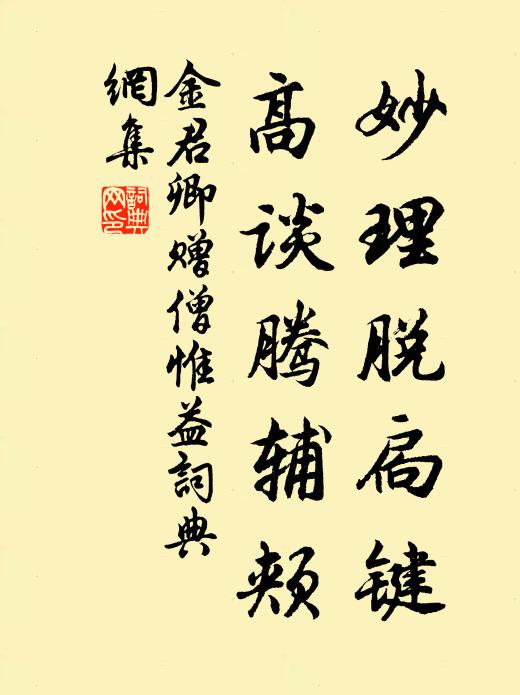 妙理脱扃键
高谈腾辅颊
金君卿赠僧惟益詞典
網集
詞典網印